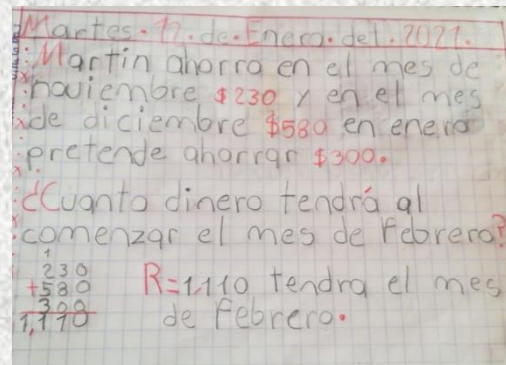 Martes.12.de.Enero.del.2021.
Martin ahorra en el mes de
noviembre $230 y en el mes
de diciembre $580 en enero
pretende ahorrar $300.
¿Cuanto dinero tendrá al
comenzar el mes de Febrero?
1
230
+580
300
1,110
R=1,110 tendra el mes
de Febrero.